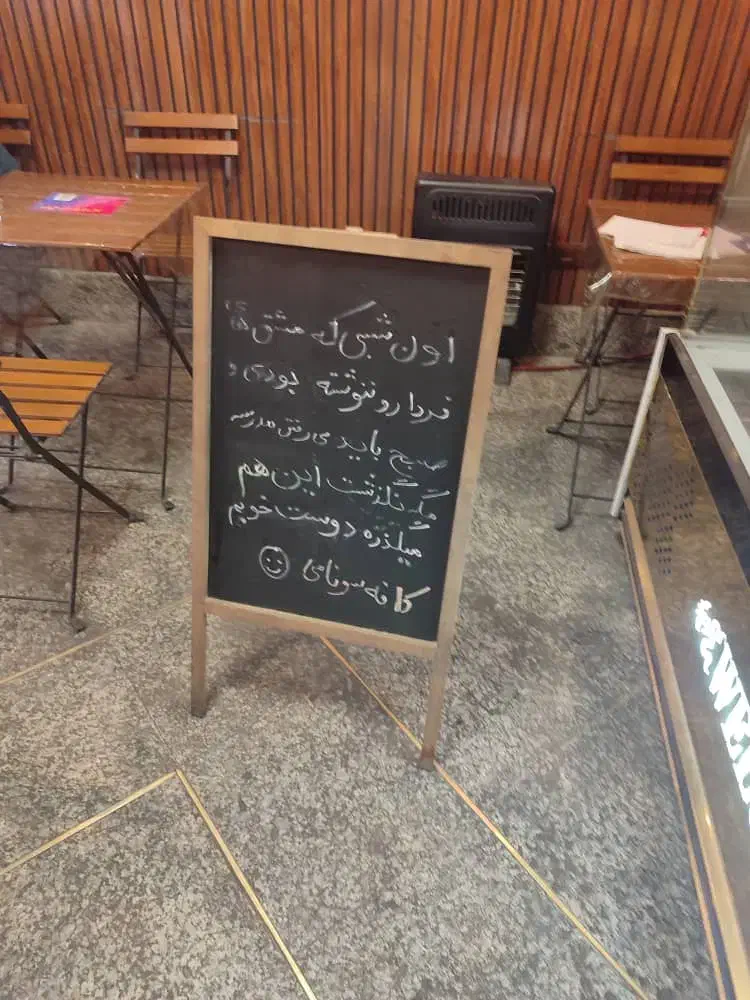 اون شبی که مشق های
فردا رو ننوشته بودی و
صبح باید می رفتی مدرسه
مگه نگذشت این هم
میگذره دوست خوبم
کافه سونامی